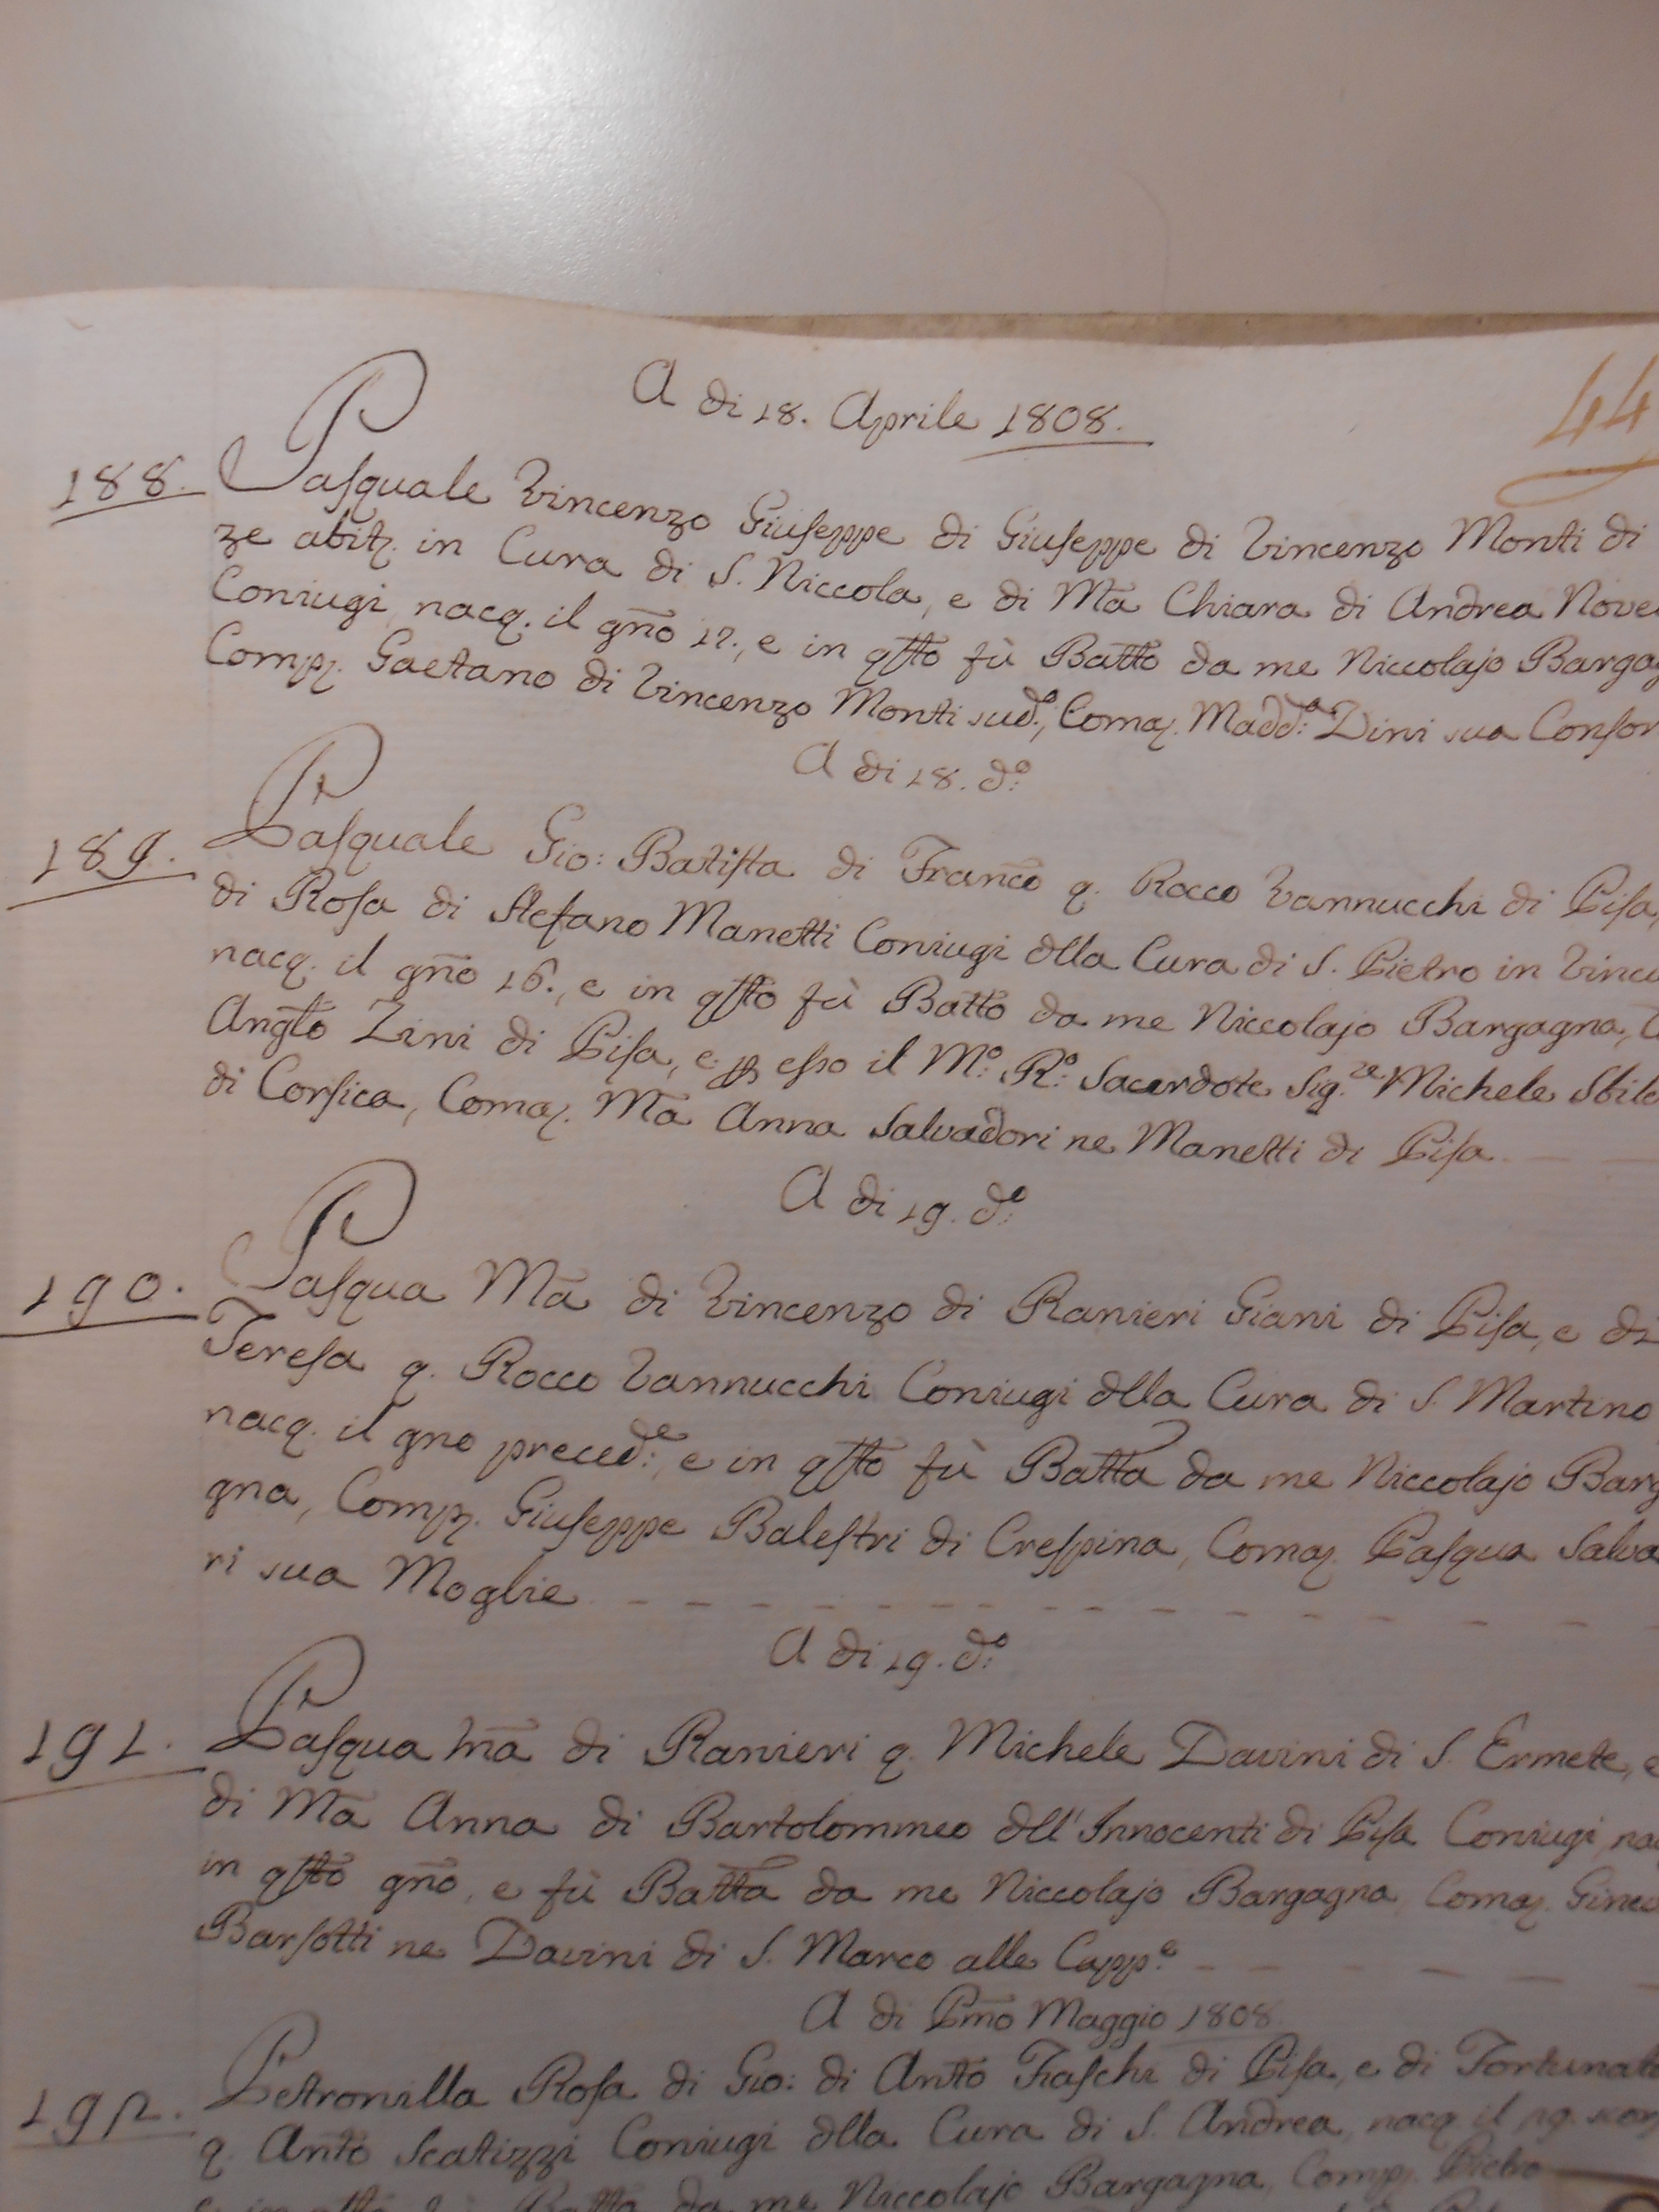 A di 18. Aprile 1808.
44
188. Pasquale Vincenzo Giuseppe di Giuseppe di Vincenzo Monti di
ze abitᵢ. in Cura di S. Niccola, e di Mā Chiara di Andrea
Coniugi, nacq. il gn̄o 17., e in qsto fù Batto da me Niccolajo
Comp. Gaetano di Vincenzo Monti sud.º, Coma. Madd.ª Dini sua
A di 18. d.º
189. Pasquale Gio: Batista di Franc̄o q. Rocco Vannucchi di Pisa,
di Rosa di Stefano Manetti Coniugi dlla Cura di S. Pietro in
nacq. il gn̄o 16., e in qsto fù Batto da me Niccolajo Bargagna,
Anglo Zini di Pisa, e p esso il M.º R.º Sacerdote Sig.re Michele
di Corsica, Coma. Mā Anna Salvadori ne Manetti di Pisa
A di 19. d.º
190. Pasqua Mā di Vincenzo di Ranieri Giani di Pisa, e di
Teresa q. Rocco Vannucchi Coniugi dlla Cura di S. Martino
nacq. il gno preced.e, e in qsto fù Batta da me Niccolajo Barga
gna, Comp. Giuseppe Balestri di Crespina, Coma. Pasqua Salva
ri sua Moglie
A di 19. d.º
191. Pasqua Mā di Ranieri q. Michele Davini di S. Ermete, e
di Mā Anna di Bartolommeo dll'Innocenti di Pisa Coniugi
in qsto gn̄o, e fù Batta da me Niccolajo Bargagna, Coma.
Barsotti ne Davini di S. Marco alle Capp.e
A di Pm̄o Maggio 1808.
192. Petronilla Rosa di Gio: di Anto Fraschi di Pisa, e di
q. Anto Scatizzi Coniugi dlla Cura di S. Andrea, nacq il
Batta da me Niccolajo Bargagna, Comp. Pietro